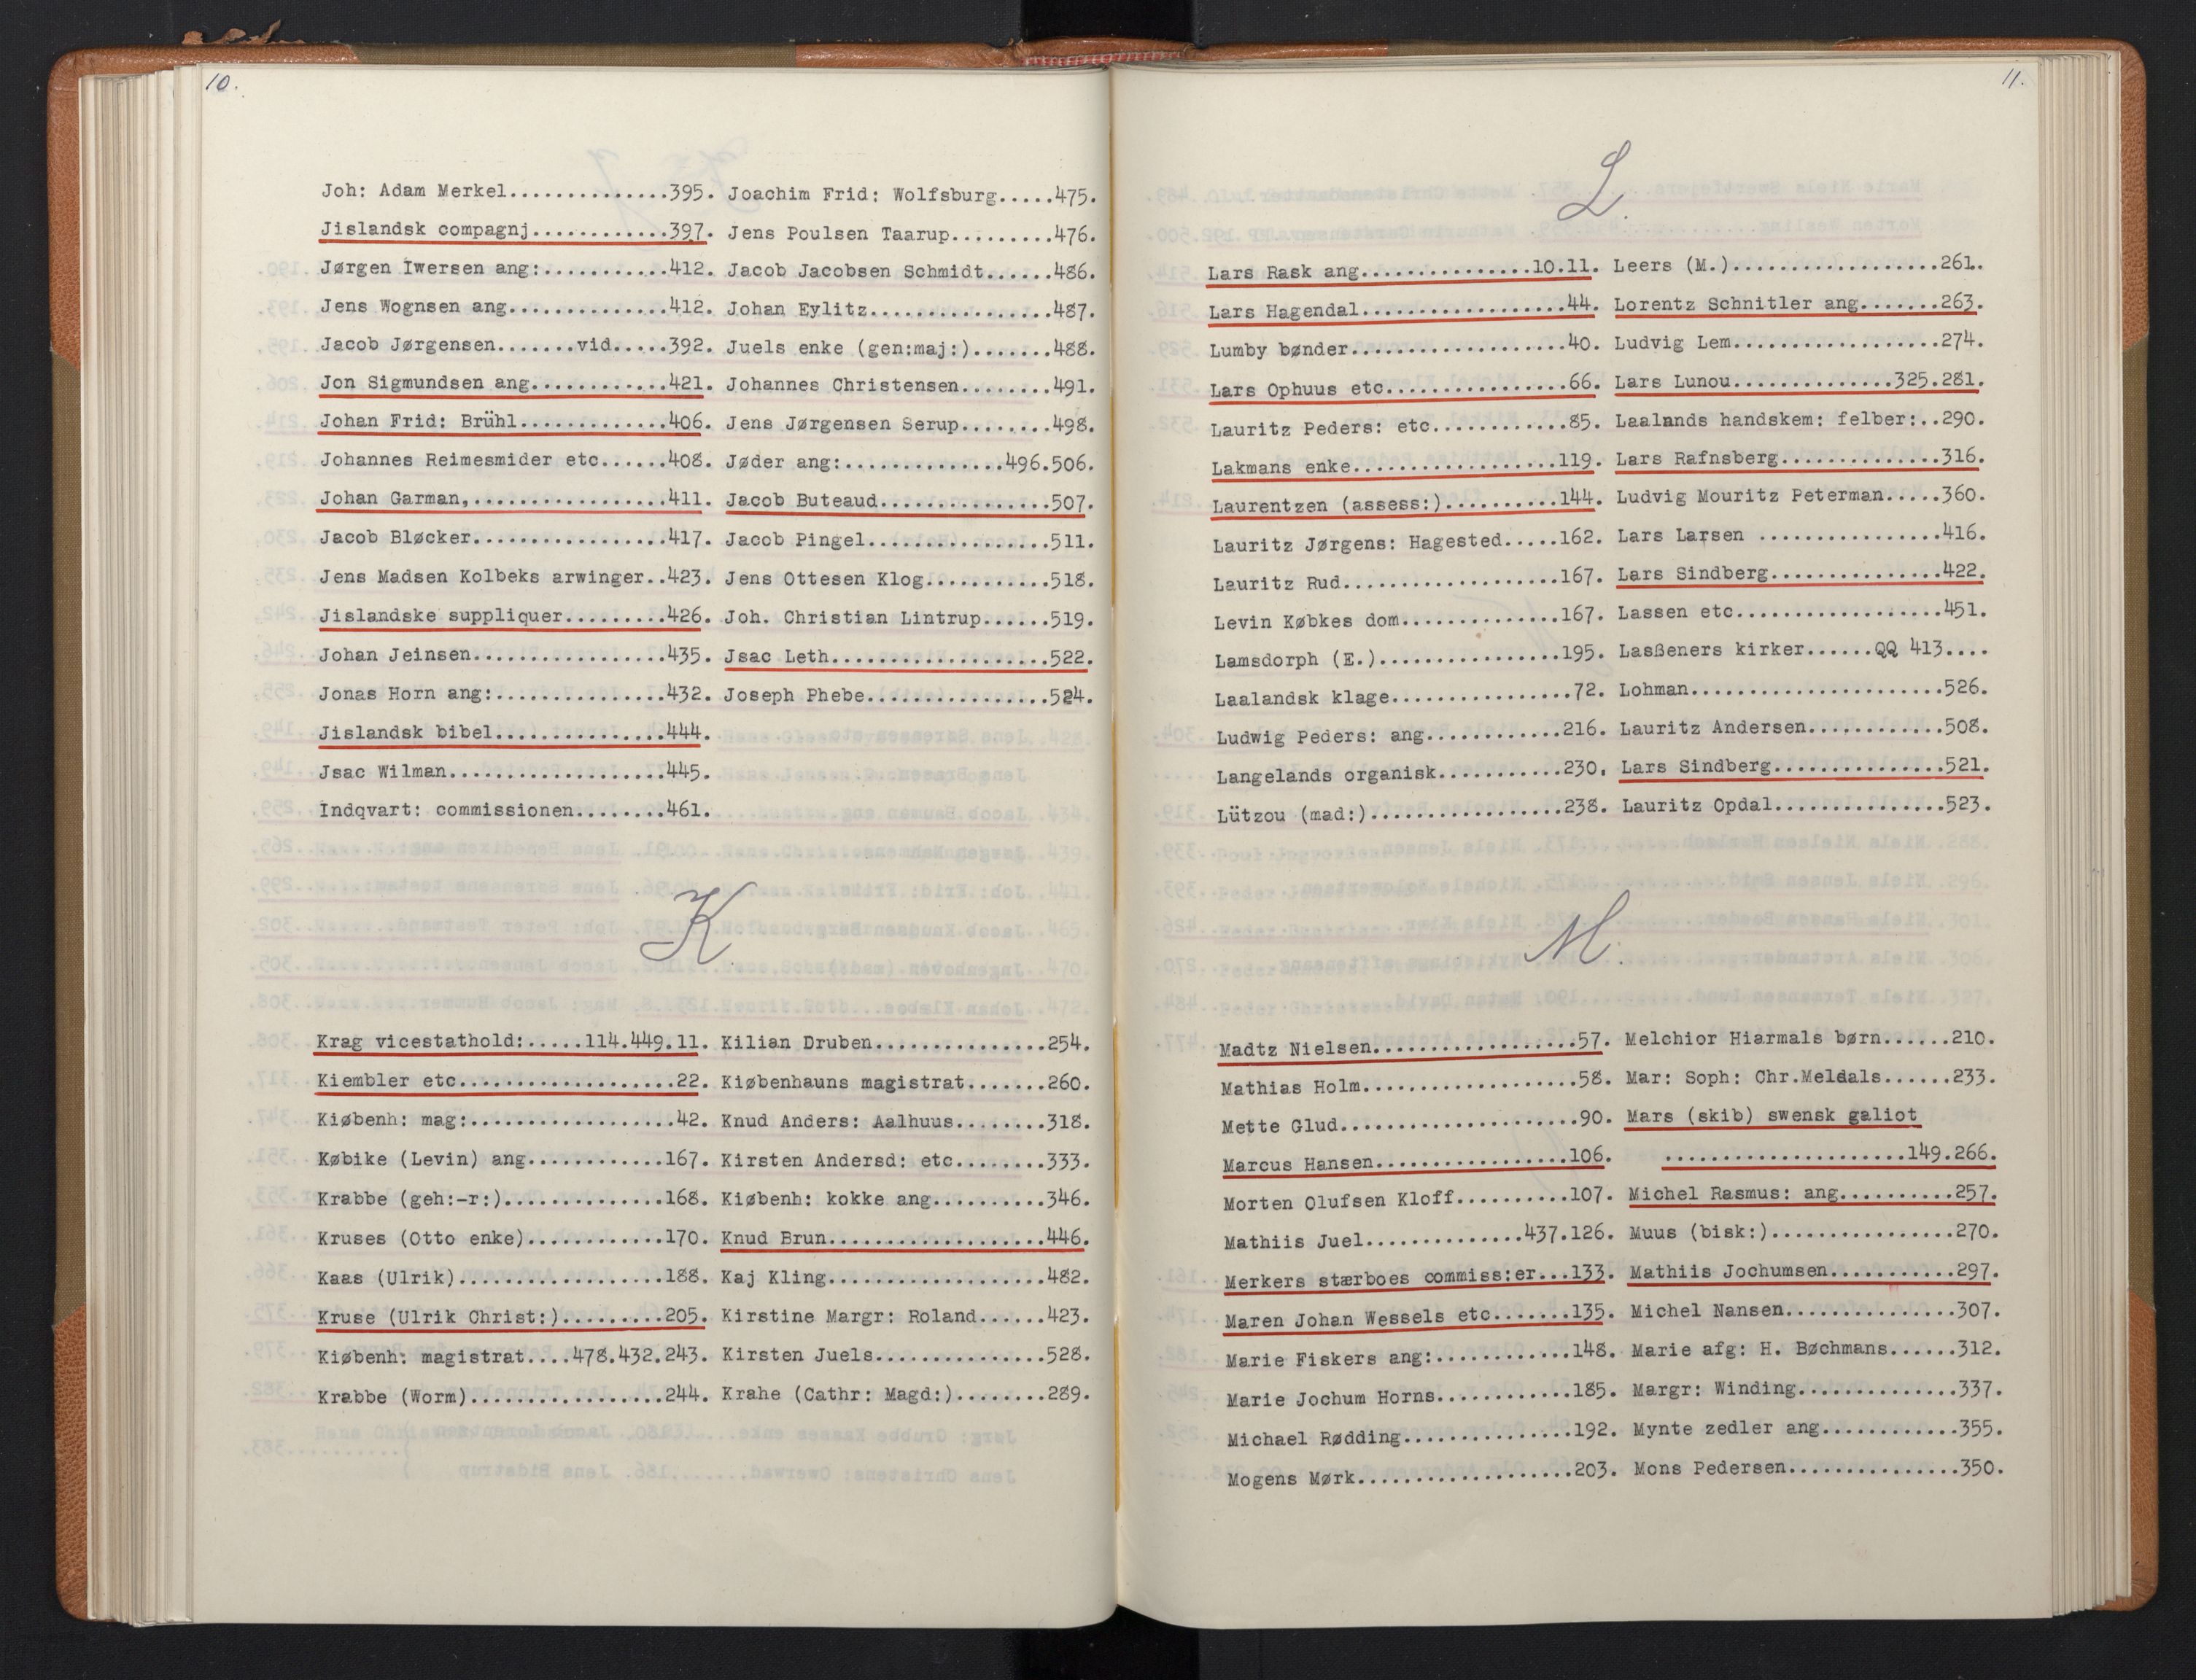 10.
Joh: Adam Merkel..............395.
Jislandsk compagnj............397.
Jørgen Iwersen ang:...........412.
Jens Wognsen ang..............412.
Jacob Jørgensen.......vid.....392.
Jon Sigmundsen ang............421.
Johan Frid: Brühl.............406.
Johannes Reimesmider etc......408.
Johan Garman,.................411.
Jacob Bløcker.................417.
Jens Madsen Kolbeks arwinger..423.
Jislandske suppliquer.........426.
Johan Jeinsen.................435.
Jonas Horn ang:...............432.
Jislandsk bibel...............444.
Jsac Wilman...................445.
Indqvart: commissionen........461.
Joachim Frid: Wolfsburg.....475.
Jens Poulsen Taarup.........476.
Jacob Jacobsen Schmidt......486.
Johan Eylitz................487.
Juels enke (gen:maj:).......488.
Johannes Christensen........491.
Jens Jørgensen Serup........498.
Jøder ang:..............496.506.
Jacob Buteaud...............507.
Jacob Pingel................511.
Jens Ottesen Klog...........518.
Joh. Christian Lintrup......519.
Jsac Leth...................522.
Joseph Phebe................524.
K.
Krag vicestathold:.....114.449.11.
Kiembler etc...................22.
Kiøbenh: mag:..................42.
Købike (Levin) ang............167.
Krabbe (geh:-r:)..............168.
Kruses (Otto enke)............170.
Kaas (Ulrik)..................188.
Kruse (Ulrik Christ:).........205.
Kiøbenh: magistrat....478.432.243.
Krabbe (Worm).................244.
Kilian Druben...............254.
Kiøbenhauns magistrat.......260.
Knud Anders: Aalhuus........318.
Kirsten Andersd: etc........333.
Kiøbenh: kokke ang..........346.
Knud Brun...................446.
Kaj Kling...................482.
Kirstine Margr: Roland......423.
Kirsten Juels...............528.
Krahe (Cathr: Magd:)........289.
11.
L.
Lars Rask ang...............10.11.
Lars Hagendal..................44.
Lumby bønder...................40.
Lars Ophuus etc................66.
Lauritz Peders: etc............85.
Lakmans enke..................119.
Laurentzen (assess:)..........144.
Lauritz Jørgens: Hagested.....162.
Lauritz Rud...................167.
Levin Købkes dom..............167.
Lamsdorph (E.)................195.
Laalandsk klage................72.
Ludwig Peders: ang............216.
Langelands organisk...........230.
Lützou (mad:).................238.
Leers (M.)..................261.
Lorentz Schnitler ang.......263.
Ludvig Lem..................274.
Lars Lunou..............325.281.
Laalands handskem: felber:..290.
Lars Rafnsberg..............316.
Ludvig Mouritz Peterman.....360.
Lars Larsen ................416.
Lars Sindberg...............422.
Lassen etc..................451.
Lasßeners kirker......QQ 413....
Lohman......................526.
Lauritz Andersen............508.
Lars Sindberg...............521.
Lauritz Opdal...............523.
M.
Madtz Nielsen..................57.
Mathias Holm...................58.
Mette Glud.....................90.
Marcus Hansen.................106.
Morten Olufsen Kloff..........107.
Mathiis Juel..............437.126.
Merkers stærboes commiss:er...133.
Maren Johan Wessels etc.......135.
Marie Fiskers ang:............148.
Marie Jochum Horns............185.
Michael Rødding...............192.
Mogens Mørk...................203.
Melchior Hiarmals børn......210.
Mar: Soph: Chr.Meldals......233.
Mars (skib) swensk galiot
.....................149.266.
Michel Rasmus: ang..........257.
Muus (bisk:)................270.
Mathiis Jochumsen...........297.
Michel Nansen...............307.
Marie afg: H. Bøchmans......312.
Margr: Winding..............337.
Mynte zedler ang............355.
Mons Pedersen...............350.